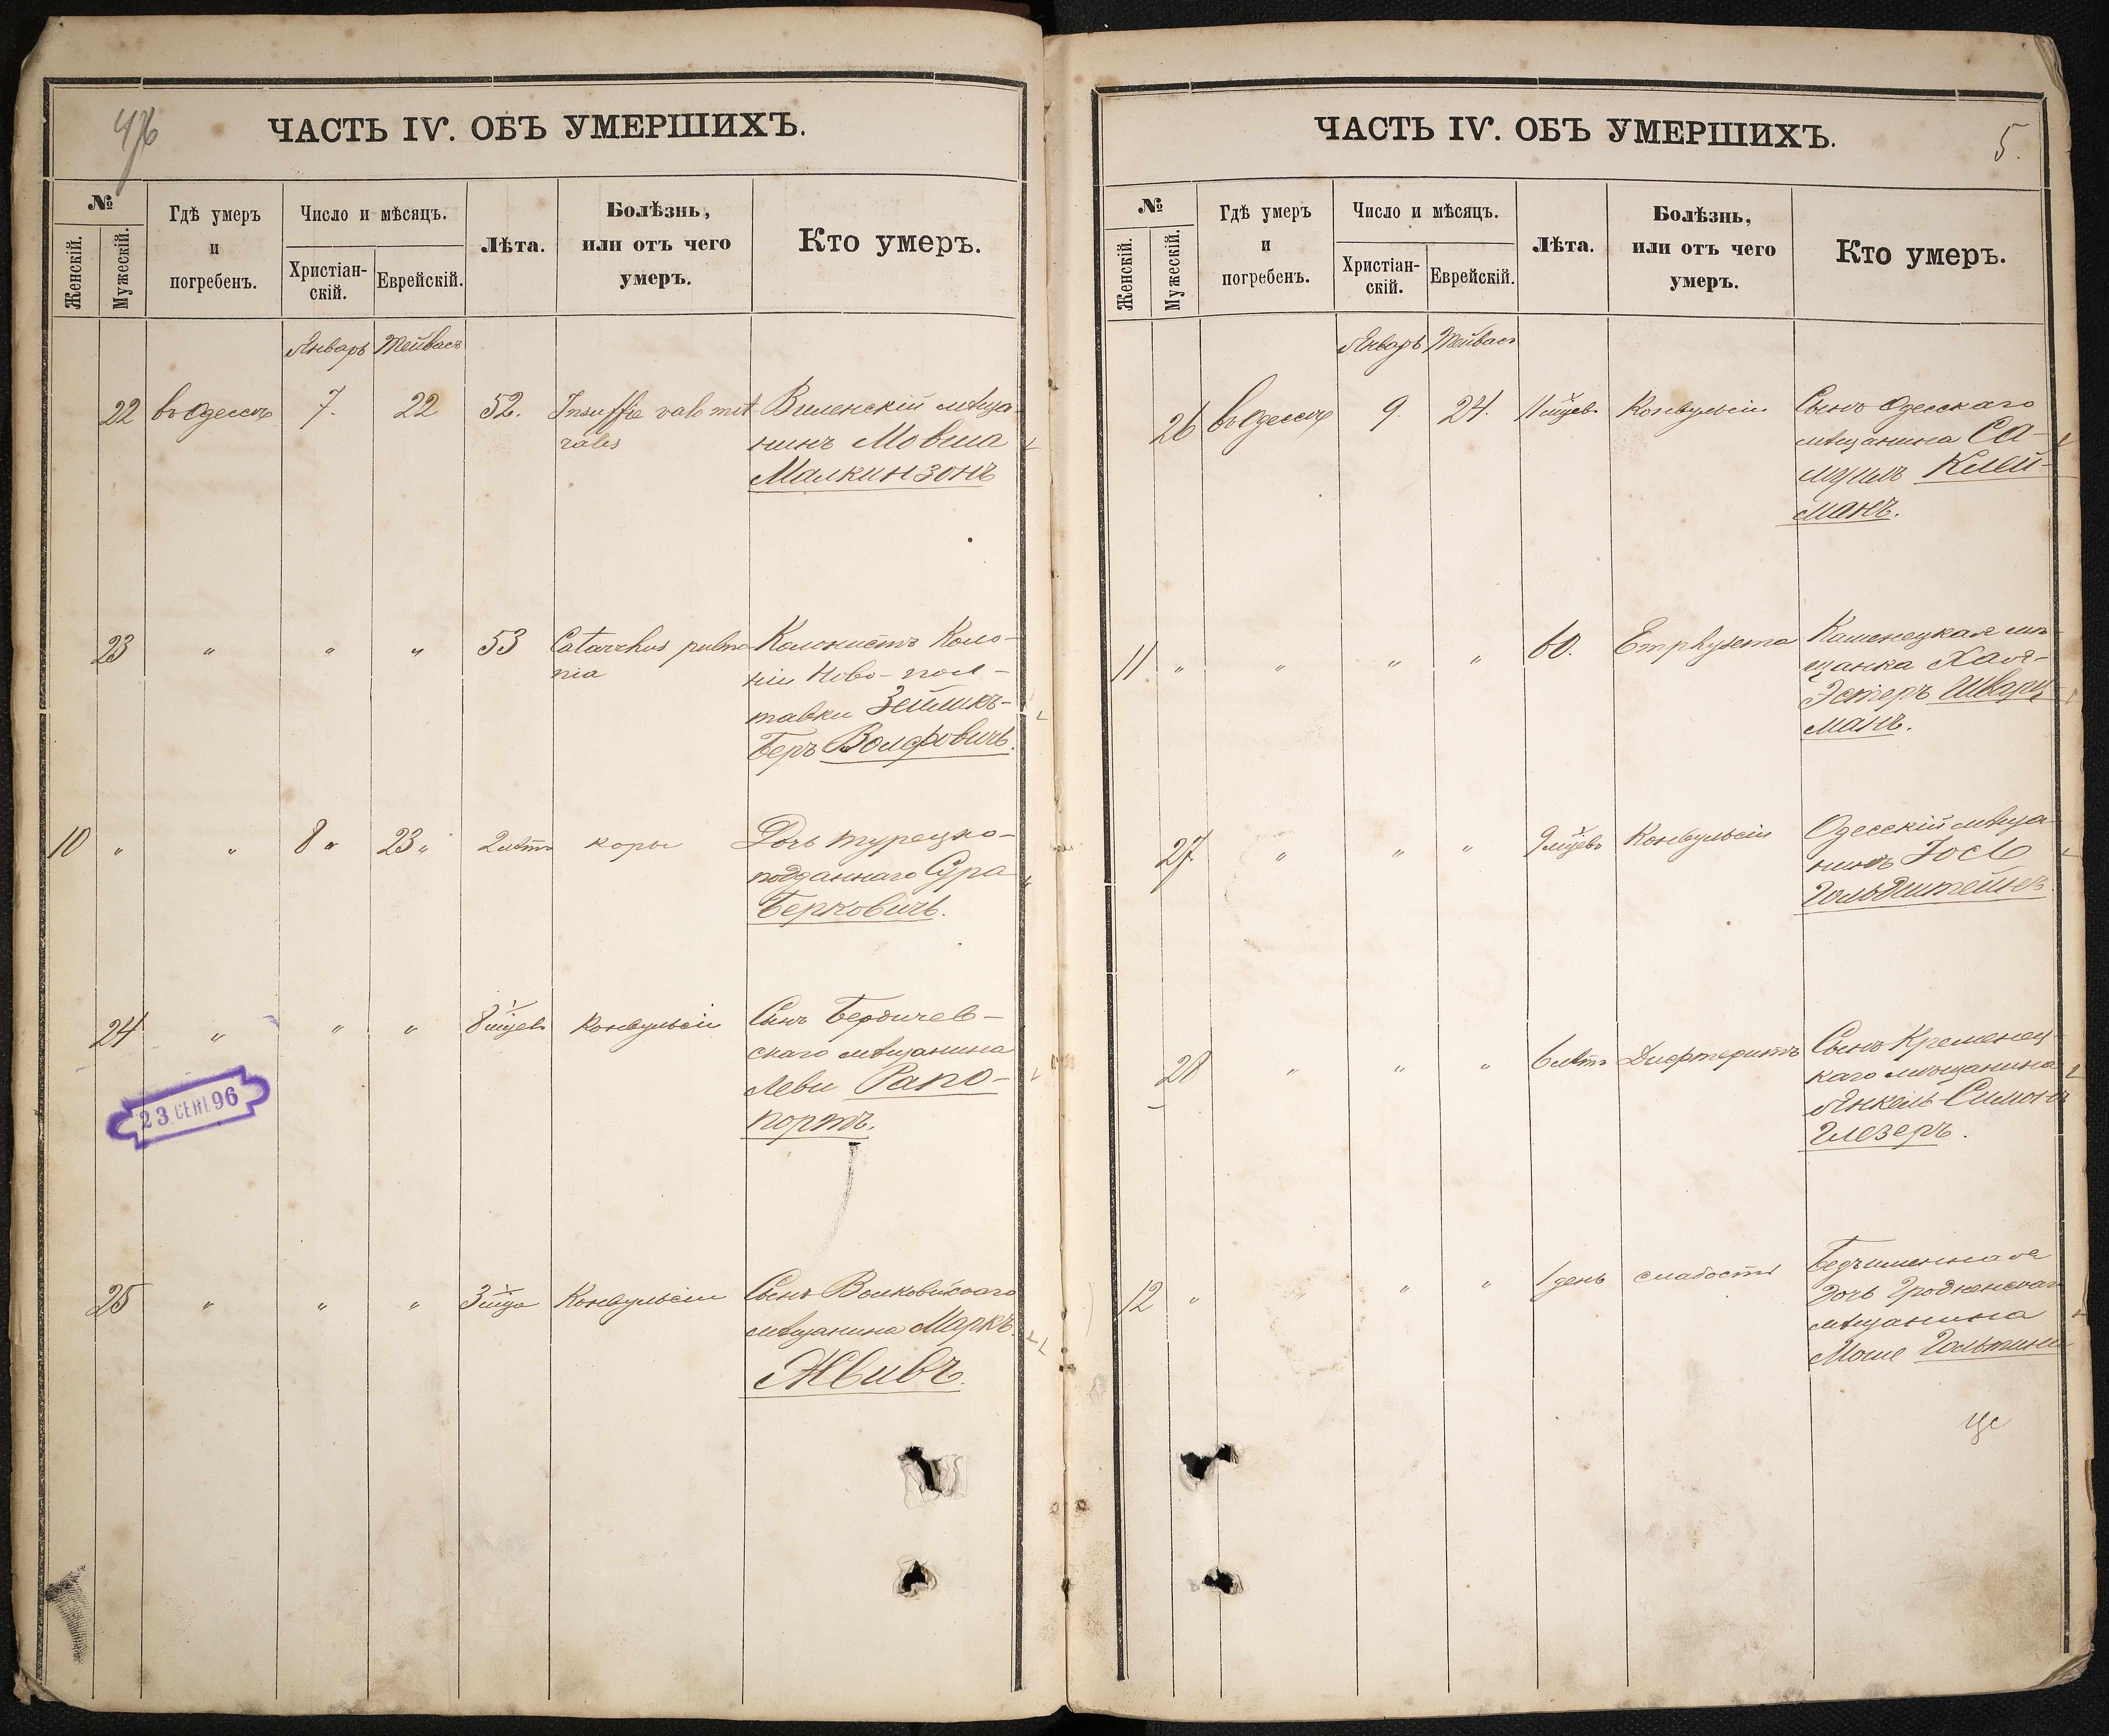 4/6
ЧАСТЬ IV. ОБЪ УМЕРШИХЪ.
№
Женскій.
Мужескій.
Гдѣ умеръ
и
погребенъ.
Число и мѣсяцъ.
Христіан-
скій.
Еврейскій.
Лѣта.
Болѣзнь,
или отъ чего
умеръ.
Кто умеръ.
Январь Тейвасъ
22 въ Одессѣ 7. 22 52. Insuffic valv mit Виленскій мѣща-
rales нинъ Мовша
Малкинзонъ
23 " " " 53 Catarrhus pulmo Колонистъ Коло-
nia ніи Ново-пол-
тавки Зеймикъ-
Беръ Волфовичъ.
10 " " 8 " 23 " 2 лѣтъ коры Дочь турецко-
подданнаго Сура
Берковичъ.
24 " " " 8 мцевъ Конвульсіи Сынъ Бердичев-
скаго мѣщанина
Леви Рапо-
портъ.
23 СЕНТ 96
25 " " " 3 мца Конвульсіи Сынъ Волковискаго
мѣщанина Маркъ
Живъ.
ЧАСТЬ IV. ОБЪ УМЕРШИХЪ.
5.
№
Женскій.
Мужескій.
Гдѣ умеръ
и
погребенъ.
Число и мѣсяцъ.
Христіан-
скій.
Еврейскій.
Лѣта.
Болѣзнь,
или отъ чего
умеръ.
Кто умеръ.
Январь Тейвасъ
26 въ Одессѣ 9. 24. 11 мцевъ Конвульсіи Сынъ Одесскаго
мѣщанина Са-
муилъ Клей-
манъ.
11 " " " " 60. Emphysema Каменецкая мѣ-
щанка Хая-
Эстеръ Шварц
манъ.
27. " " " 9 мцевъ Конвульсіи Одесскій мѣща-
нинъ Іось
Гольдштейнъ
28 " " " 6 лѣтъ Дифтеритъ Сынъ Кременец-
каго мѣщанина
Янкель-Симонъ
Глезеръ.
12 " " " " 1 день слабость Безъименная
дочь Гродненскаго
мѣщанина
Моше